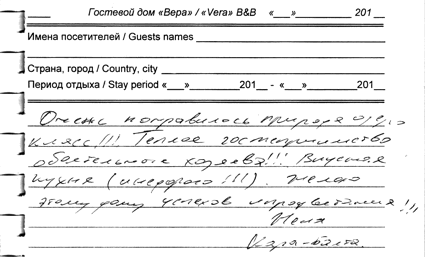 Гостевой дом «Вера» / «Vera» B&B «___» __________ 201__
Имена посетителей / Guests names
Страна, город / Country, city
Период отдыха / Stay period «___»__________201__ - «___»__________201__
Очень понравилось природа озеро
класс!!! Теплое гостеприимство
обаятельного хозяева!!! Вкусная
кухня (недорого!!!). Желаю
этому дому успехов и процветания!!!
Неля
Кара-Балта.